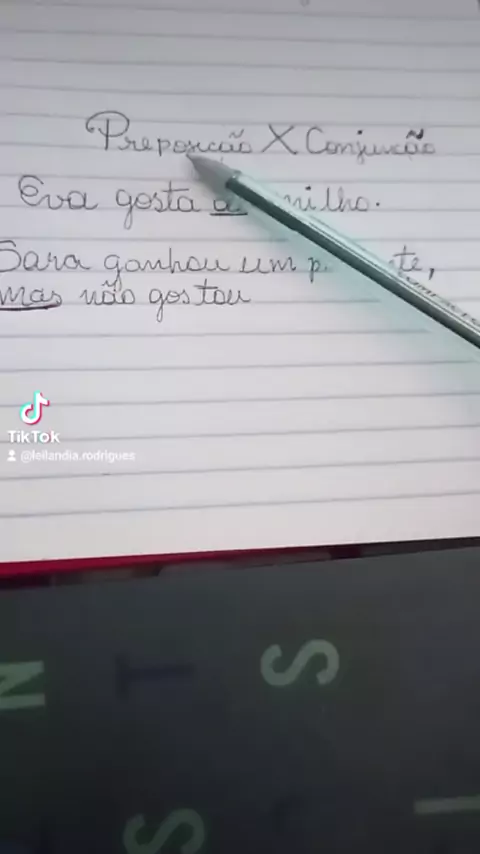 Preposição X Conjunção
Eva gosta milho.
Sara ganhou um
mas não gostou
TikTok
@leilandia.rodrigues
N T S
S I